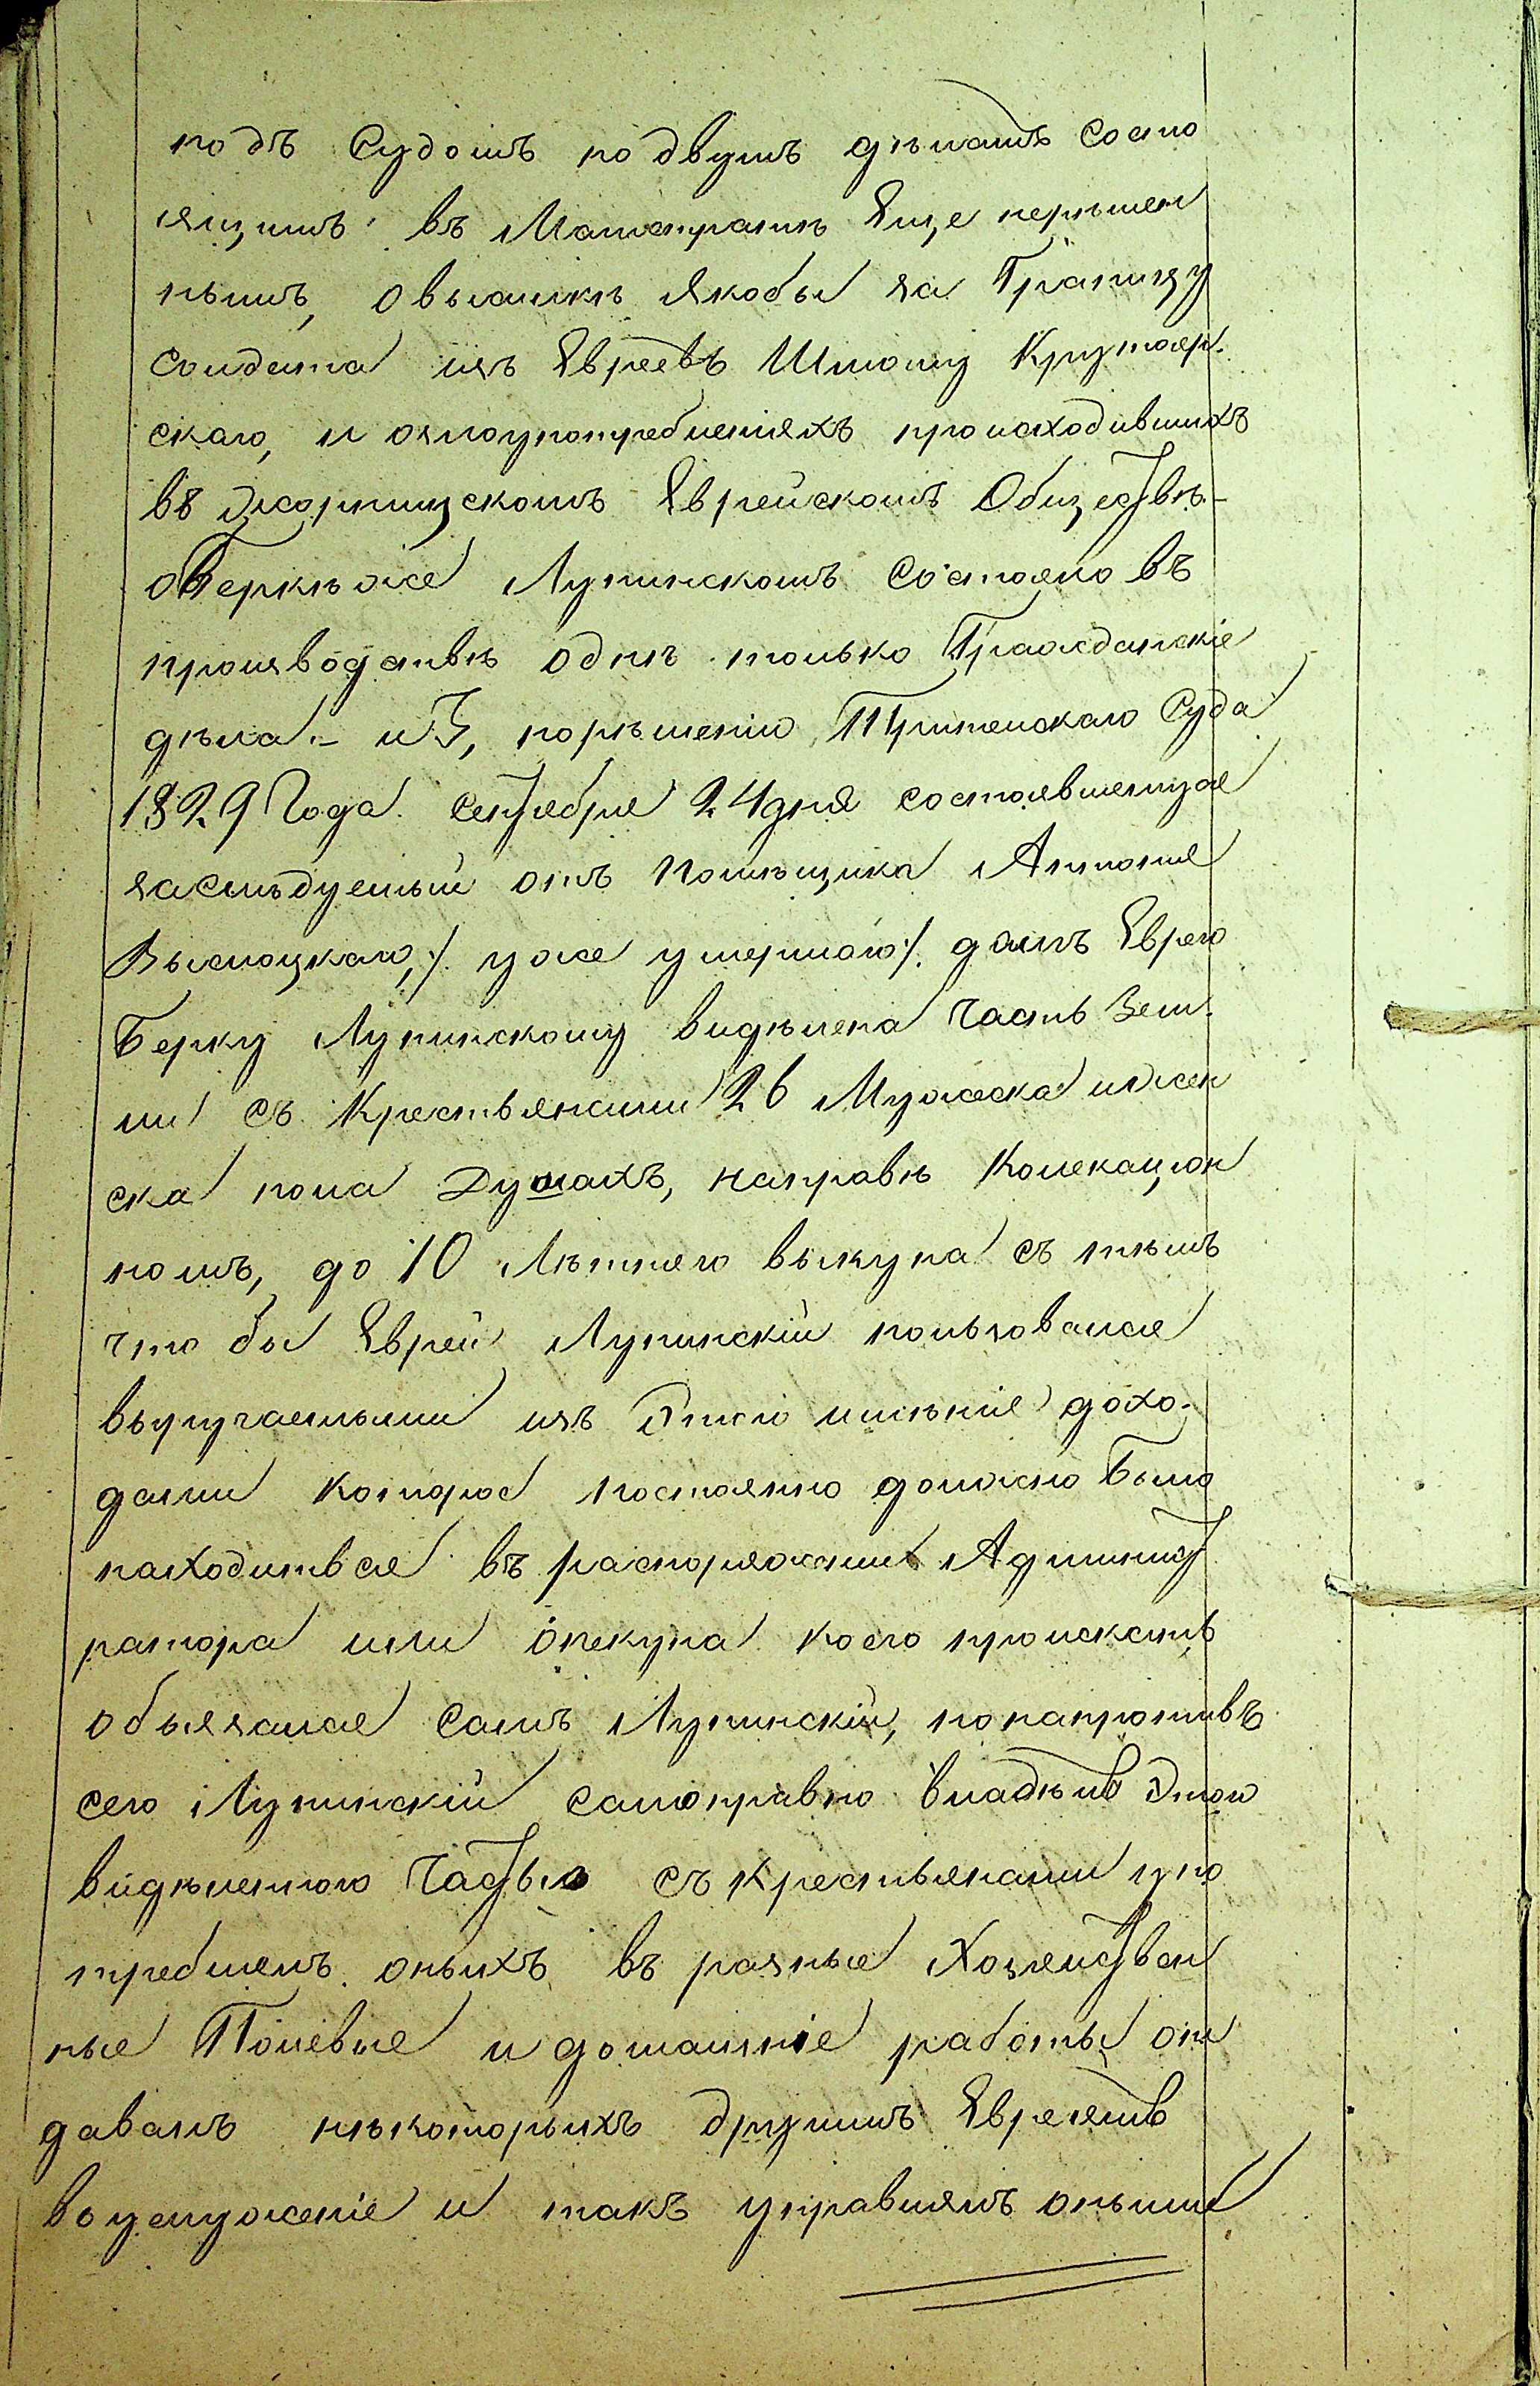 подъ Судомъ по двумъ дѣламъ состо
ящимъ въ Магистратѣ Еще нерѣшен
нымъ, овысылкѣ Якобы за Границу
Солдата изъ Евреевъ Шмошу Крутояр.
скаго, и озлоупотребленіяхъ происходившихъ
въ Жорнищскомъ Еврейскомъ Обществѣ-
оБеркѣ же Лупинскомъ состояло въ
производствѣ однѣ только Гражданскіе
дѣла.- и 3, порѣшенію Третейскаго Суда
1829 Года. Сентября 24 дня состоявшемуся
заслѣдуемый отъ Помѣщика Антонія
Высоцкаго, ./. уже умершого ./. долгъ Еврею
Берку Лупинскому видѣлена Часть Зем.
ли съ Крестьянами 26 Мужеска ижен
ска пола Душахъ, направѣ Колекацион
номъ, до 10 Лѣтнего выкупа съ тѣмъ
что бы Еврей Лупинскій пользовался
выручаемыми изъ Этого имѣнія дохо.
дами Которое постоянно должно было
находиться въ распоряженіи Админист
ратора или опекуна коего проискать
обязался самъ Лупинскій, нонапротивъ
сего Лупинскій самоправно владѣлъ Этою
видѣленною Частью съ крестьянами упо
треблялъ оныхъ въ разные Хозяйствен
ные Полевые и домашніе работы от
давалъ нѣкоторыхъ другимъ Евреямъ
воуслуженіе и такъ управлялъ оными